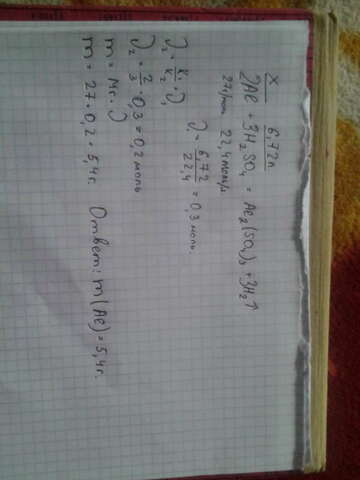 x 6,72л
2Al + 3H₂SO₄ = Al₂(SO₄)₃ + 3H₂↑
27г/моль 22,4 моль/л
ν = 6,72/22,4 = 0,3 моль
ν₂ = k₁/k₂ · ν₁
ν₂ = 2/3 · 0,3 = 0,2 моль
m = Mr · ν
m = 27 · 0,2 = 5,4 г. Ответ: m(Al) = 5,4 г.